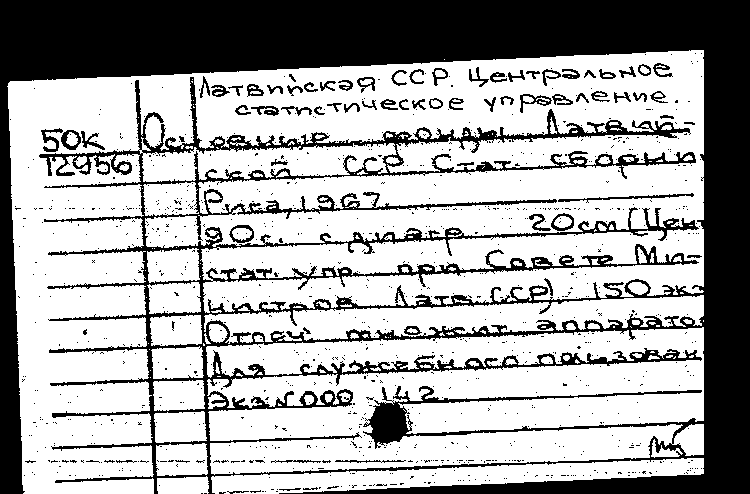 Латвийская ССР. Центральное
статистическое управление.
50К Основные фонды Латвий-
12956 ской ССР. Стат. сборни
Рига, 1967.
90с. с диагр. 20см (Цент
стат. упр. при Совете Ми-
нистров Латв. ССР). 150 экз
Отпеч. множит. аппарато
Для служебного пользован
Экз N 000 142